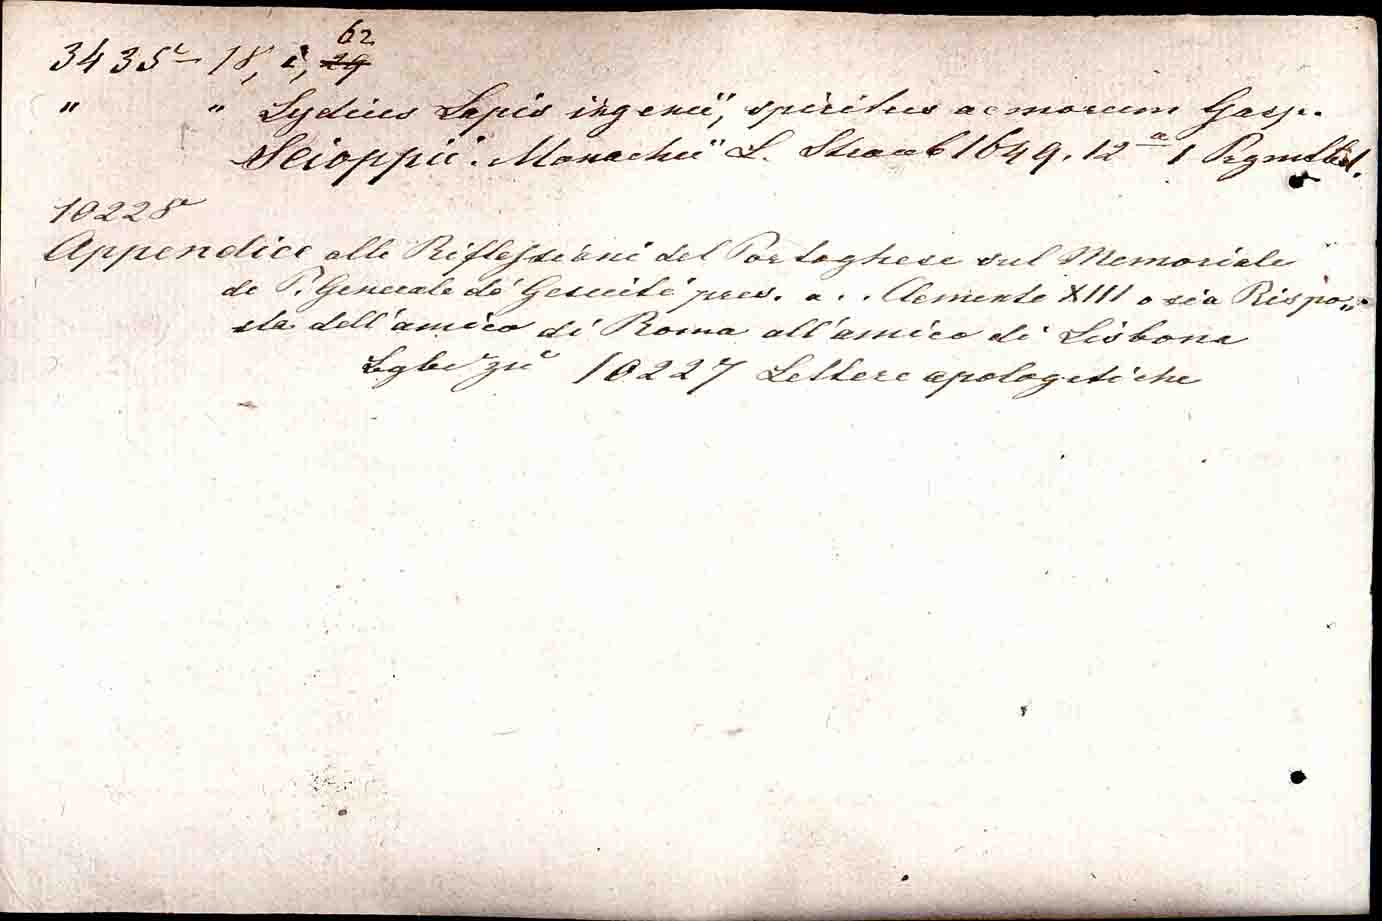 62
3435 18, i, 29
" " Lydius Lapis ingenii, spiritus ac morum Gasp.
Scioppii. Monachii L. Straub 1649. 12° 1 Pgmtbd.
10228
Appendice alle Riflessioni del Portoghese sul Memoriale
de P. Generale de' Gesuiti pres. a . . Clemente XIII o sia Rispo„
sta dell'amico di Roma all'amico di Lisbona
Lgbr zu 10227 Lettere apologetiche